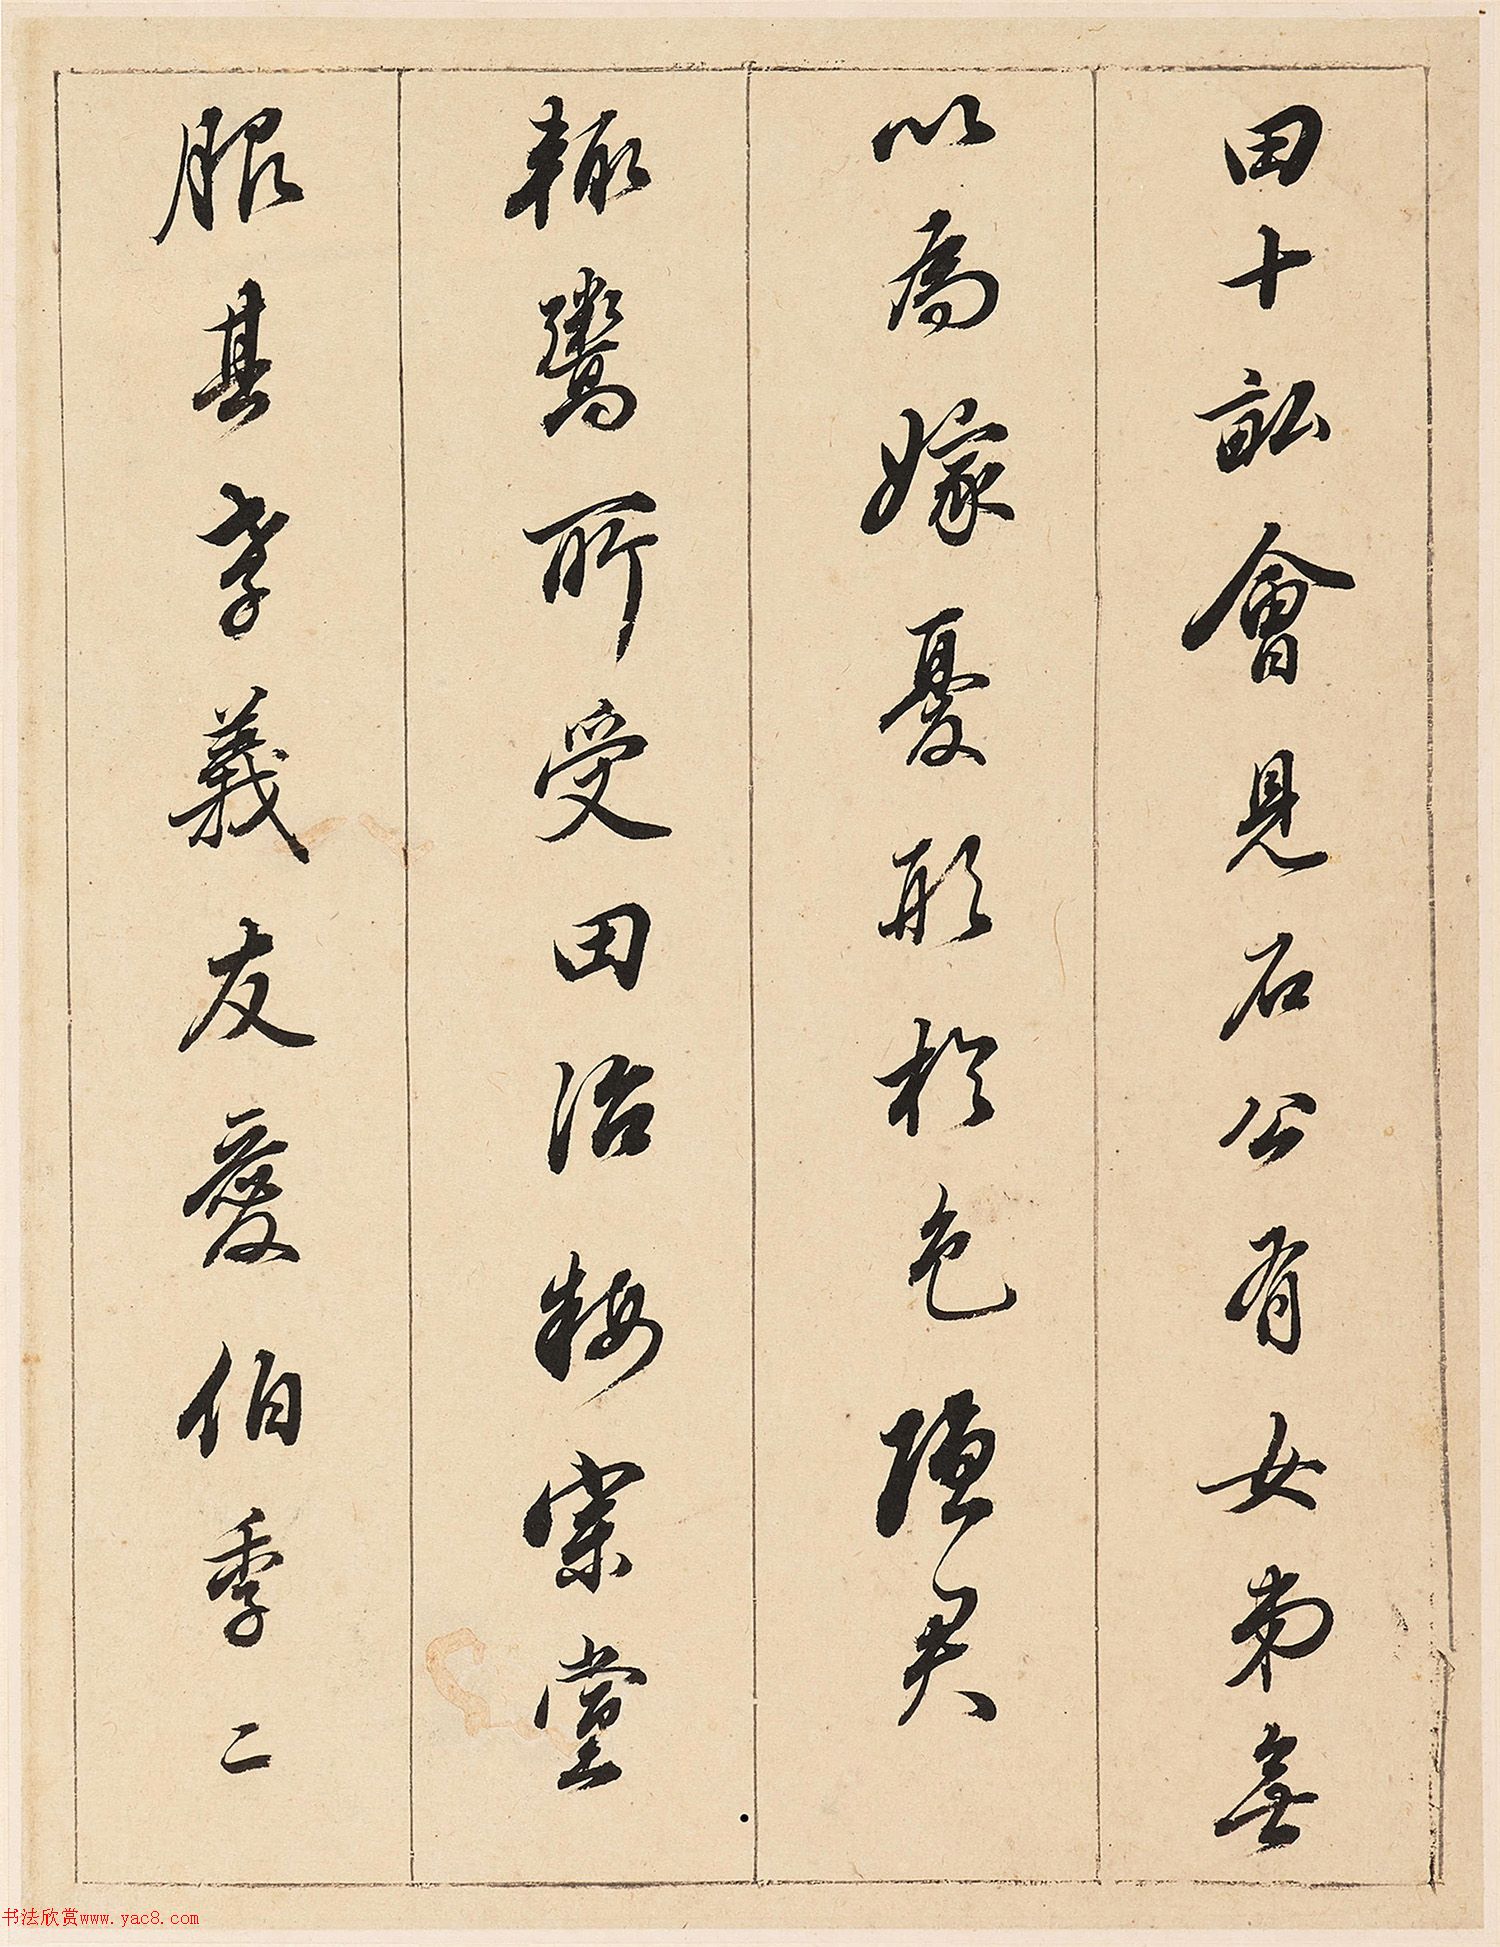 田十畝會見石公有女弟無
以為嫁憂形於色隱君
輒鬻所受田治粧宗黨
服其孝義友愛伯季二
书法欣赏www.yac8.com